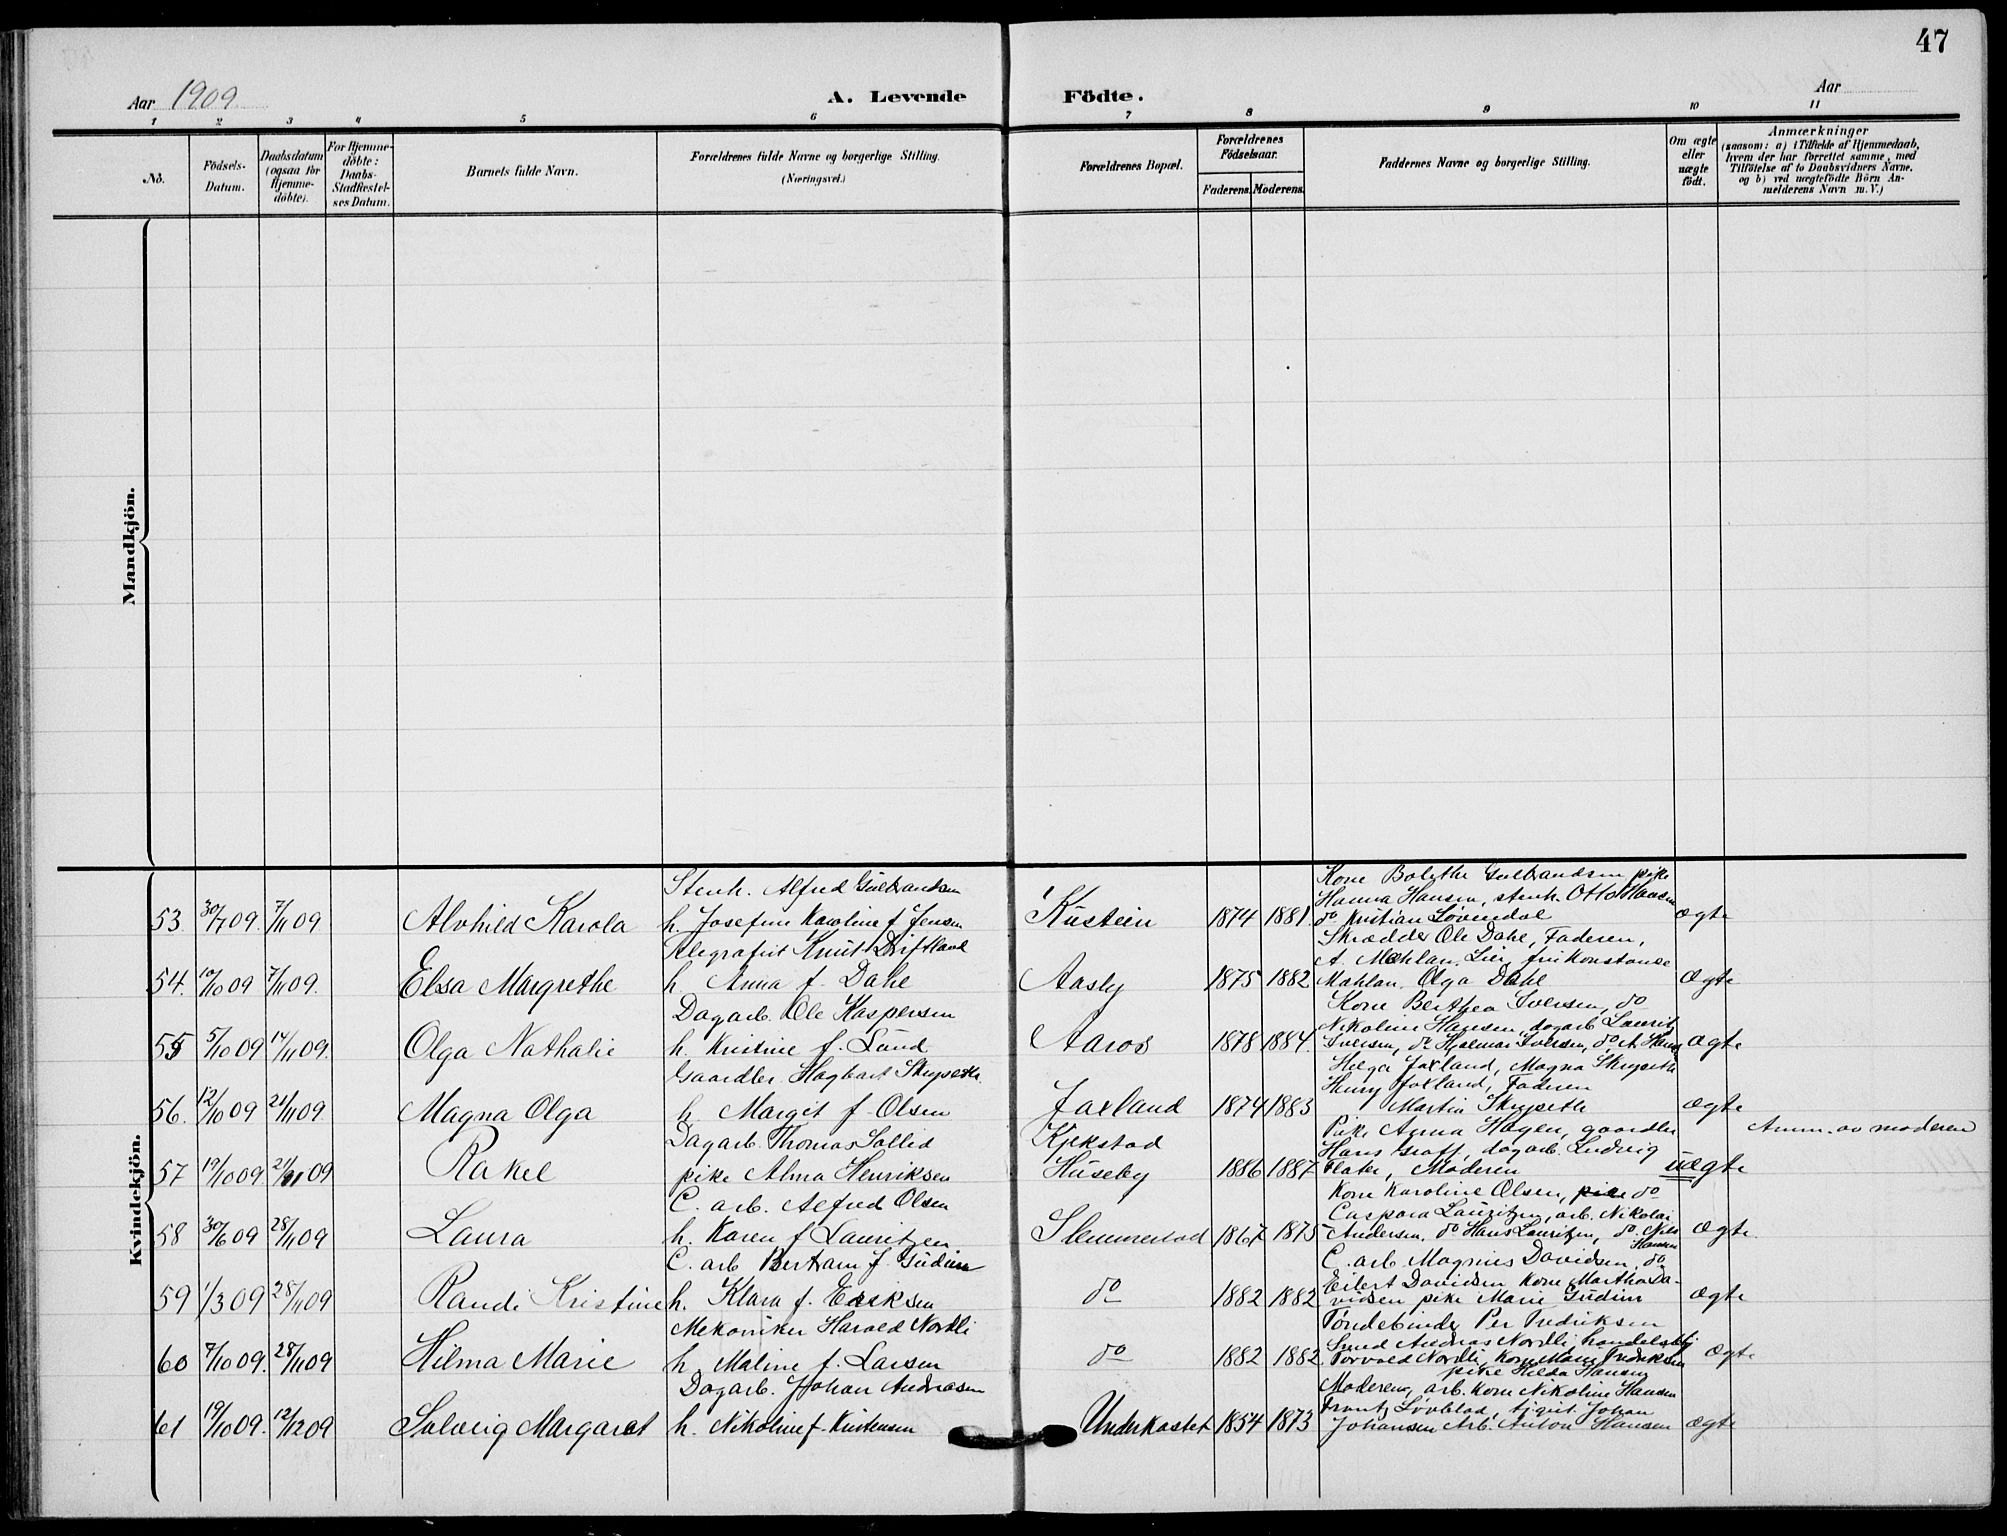 47
Aar 1909
A. Levende
Födte.
Aar
1 2 3 4 5 6 7 8 9 10 11
No.
Födsels-
Datum.
Daabsdatum
(ogsaa for
Hjemme-
døbte).
For Hjemme-
døbte:
Daabs-
Stadfæstel-
ses Datum.
Barnets fulde Navn.
Forældrenes fulde Navne og borgerlige Stilling.
(Næringsvei.)
Forældrenes Bopæl.
Forældrenes
Födselsaar.
Faderens. Moderens.
Faddernes Navne og borgerlige Stilling.
Om ægte
eller
uægte
födt.
Anmærkninger
(saasom: a) i Tilfælde af Hjemmedaab,
hvem der har forrettet samme, med
Tilföielse af to Daabsvidners Navne,
og b) ved uægtefödte Börn An-
melderens Navn m. V.)
Mandkjön.
Kvindekjön.
53. 30/7 09. 7/11 09 Alvhild Karola
Stenh. Alfred Gulbrandsen
h. Josefine Karoline f. Jensen
Kustein 1874 1881
Kone Bolethe Gulbrandsen pike
Hanna Hansen, stenh. Otto Hansen
do Kristian Løvendal
ægte
54. 10/10 09 7/11 09. Elsa Margrethe
Telegrafist Knut Driftland
h. Anna f. Dahl
Aasly 1875 1882
Skrædder Ole Dahl, Faderen,
A. Mæhlan, Lier, fru Konstanse
Mæhlan. Olga Dahl
ægte
55 5/10 09 14/11 09. Olga Nathalie
Dagarb. Ole Kaspersen
h. Kristine f. Lund
Aaros 1878 1884.
Kone Berthea Iversen, do
Nikoline Hansen, dagarb. Laurits
Iversen, do Hjalmar Iversen, do A. Hansen
ægte
56. 12/10 09 21/11 09 Magna Olga
Gaardbr. Hagbart Skrypeth.
h. Margit f. Olsen
Jaxland 1874 1883
Helga Jaxland, Magna Skrypeth
Henry Jaxland, Faderen
Martin Skrypeth
ægte
57 19/10 09 21/11 09 Rakel
Dagarb. Thomas Sollid
pike Alma Henriksen
Kjekstad
Huseby 1886 1887
Pike Anna Hagen, gaardbr.
Hans Graff, dagarb. Ludvig
Flater, Moderen
uægte
Anm. av moderen
58 30/6 09 28/11 09 Laura
C. arb. Alfred Olsen
h. Karen f. Lauritzen
Slemmestad 1867 1875
Kone Karoline Olsen, do
Caspara Lauritzen, arb. Nikolai
Andersen. do Hans Lauritzen, do. Nils
Hansen
ægte.
59 1/3 09 28/11 09 Randi Kristine
C. arb Bertram f. Gudim
h. Klara f. Eriksen
do 1882 1882
C. arb Magnus Davidsen, do
Eilert Davidsen Kone Martha Da-
vidsen pike Marie Gudim
ægte
60 7/10 09. 28/11 09 Hilma Marie
Mekaniker Harald Nordli
h. Maline f. Larsen
do 1882 1882
Töndebinder Per Fredriksen
Smed Andreas Nordli handelsbtj
Torvald Nordli, Kone Marie Fredriksen
pike Hilda Hansen
ægte
61 19/10 09. 12/12 09 Solveig Margaret
Dagarb. Johan Andreasen
h. Nikoline f. Kristensen
Underkastet 1854 1873
Moderen, arb. Kone Nikoline Hansen
Frantz Løvblad, tj.gut. Johan
Johansen Arb. Anton Hansen
ægte